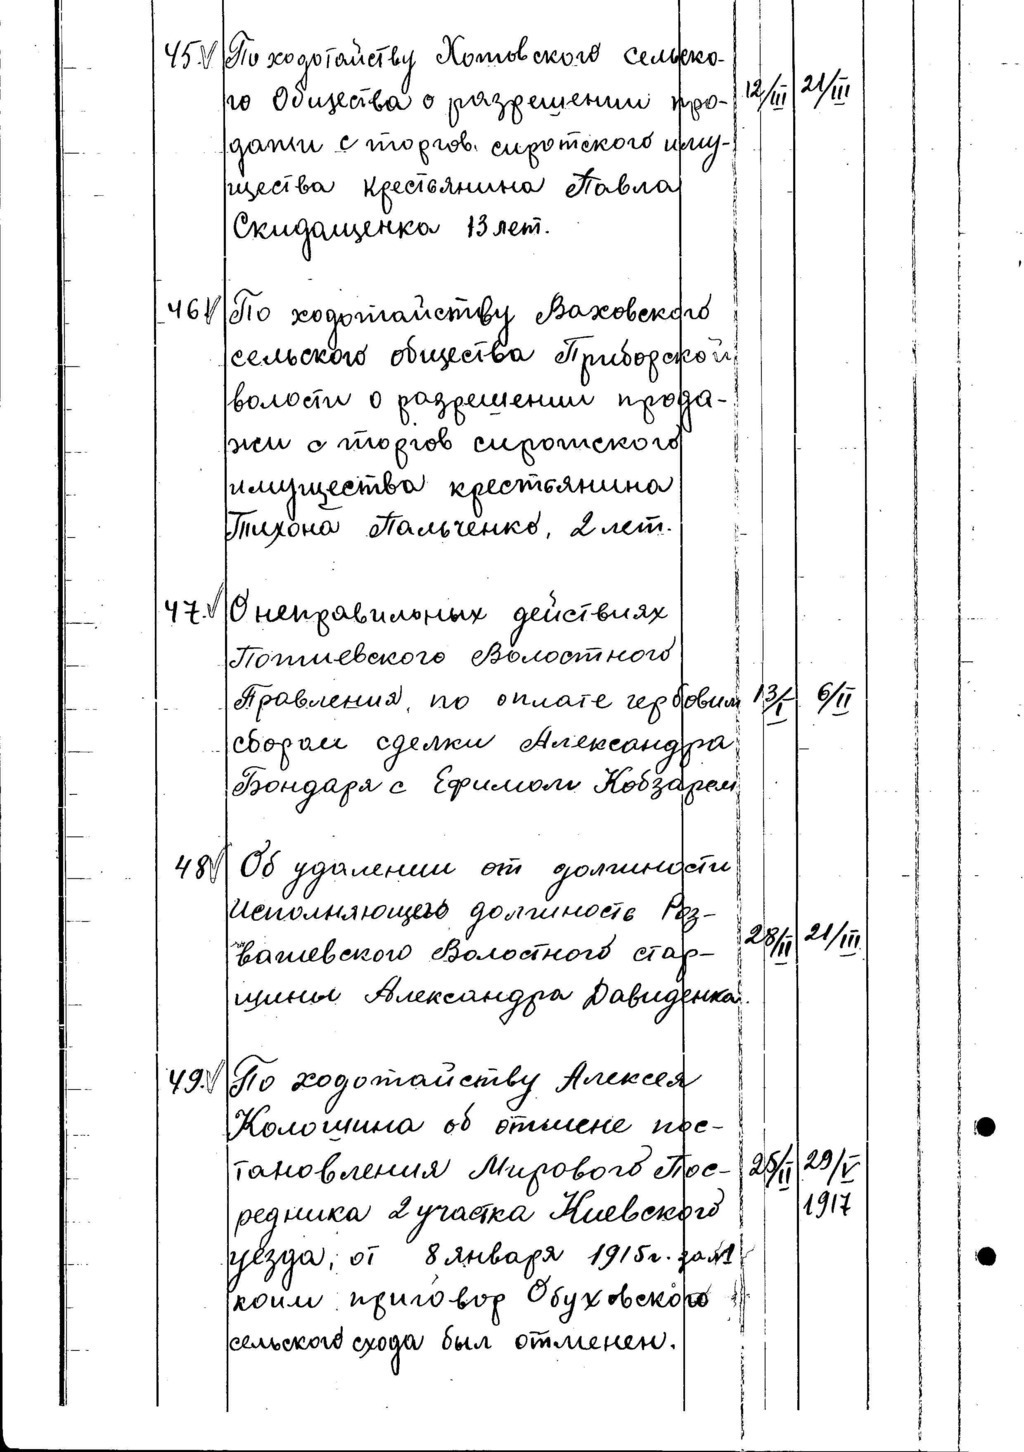 45. По ходотайству Хотовского сельско-
го Общества о разрешении про- 12/III 21/III
дажи с торгов. сиротского иму-
щества крестьянина Павла
Скидащенка 13 лет.
46 По ходотайству Ваховского
сельского общества Приборской
волости о разрешении прода-
жи с торгов сиротского
имущества крестьянина
Тихона Пальченко, 2 лет.
47. О неправильных действиях
Потиевского Волостного
Правления, по оплате гербовим 13/I 6/II
сбором сделки Александра
Бондаря с Ефимом Кобзарем
48 Об удалении от должности
Исполняющего должность Роз-
важевского Волостного стар- 28/II 21/III
щины Александра Давиденка.
49. По ходотайству Алексея
Колошина об отмене пос-
тановления Мирового Пос- 25/II 29/V
редника 2 участка Киевского 1917
уезда, от 8 января 1915 г. за №1
коим приговор Обуховского
сельского схода был отменен.